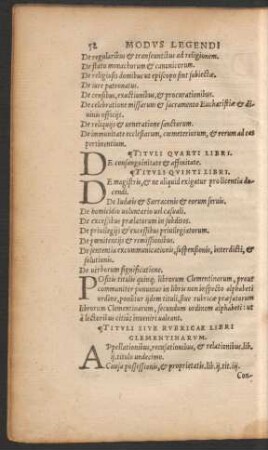 52 MODVS LEGENDI
De regularibus & transeuntibus ad religionem.
De statu monachorum & canonicorum.
De religiosis domibus ut episcopo sint subiectæ.
De iure patronatus.
De censibus, exactionibus, & procurationibus.
De celebratione missarum & sacramento Eucharistiæ & di
uinis officijs.
De reliquijs & ueneratione sanctorum.
De immunitate ecclesiarum, cœmeteriorum, & rerum ad eas
pertinentium.
¶TITVLI QVARTI LIBRI.
DE consanguinitate & affinitate.
¶TITVLI QVINTI LIBRI.
DE magistris, & ne aliquid exigatur pro licentia do
cendi.
De Iudæis & Sarracenis & eorum seruis.
De homicidio uoluntario uel casuali.
De excessibus prælatorum in subditos.
De priuilegijs & excessibus priuilegiatorum.
De pœnitentijs & remissionibus.
De sententia excommunicationis, suspensionis, interdicti, &
solutionis.
De uerborum significatione.
POsitis titulis quinq; librorum Clementinarum, prout
communiter ponuntur in libris non inspecto alphabeti
ordine, ponūtur ijdem tituli, siue rubricæ præfatorum
librorum Clementinarum, secundum ordinem alphabeti: ut
à lectoribus citius inueniri ualeant.
¶TITVLI SIVE RVBRICAE LIBRI
CLEMENTINARVM.
APpellationibus, recusationibus, & relationibus, lib.
ij. titulo undecimo.
Causa possessionis, & proprietatis, lib. ij. tit. iij.
Con-